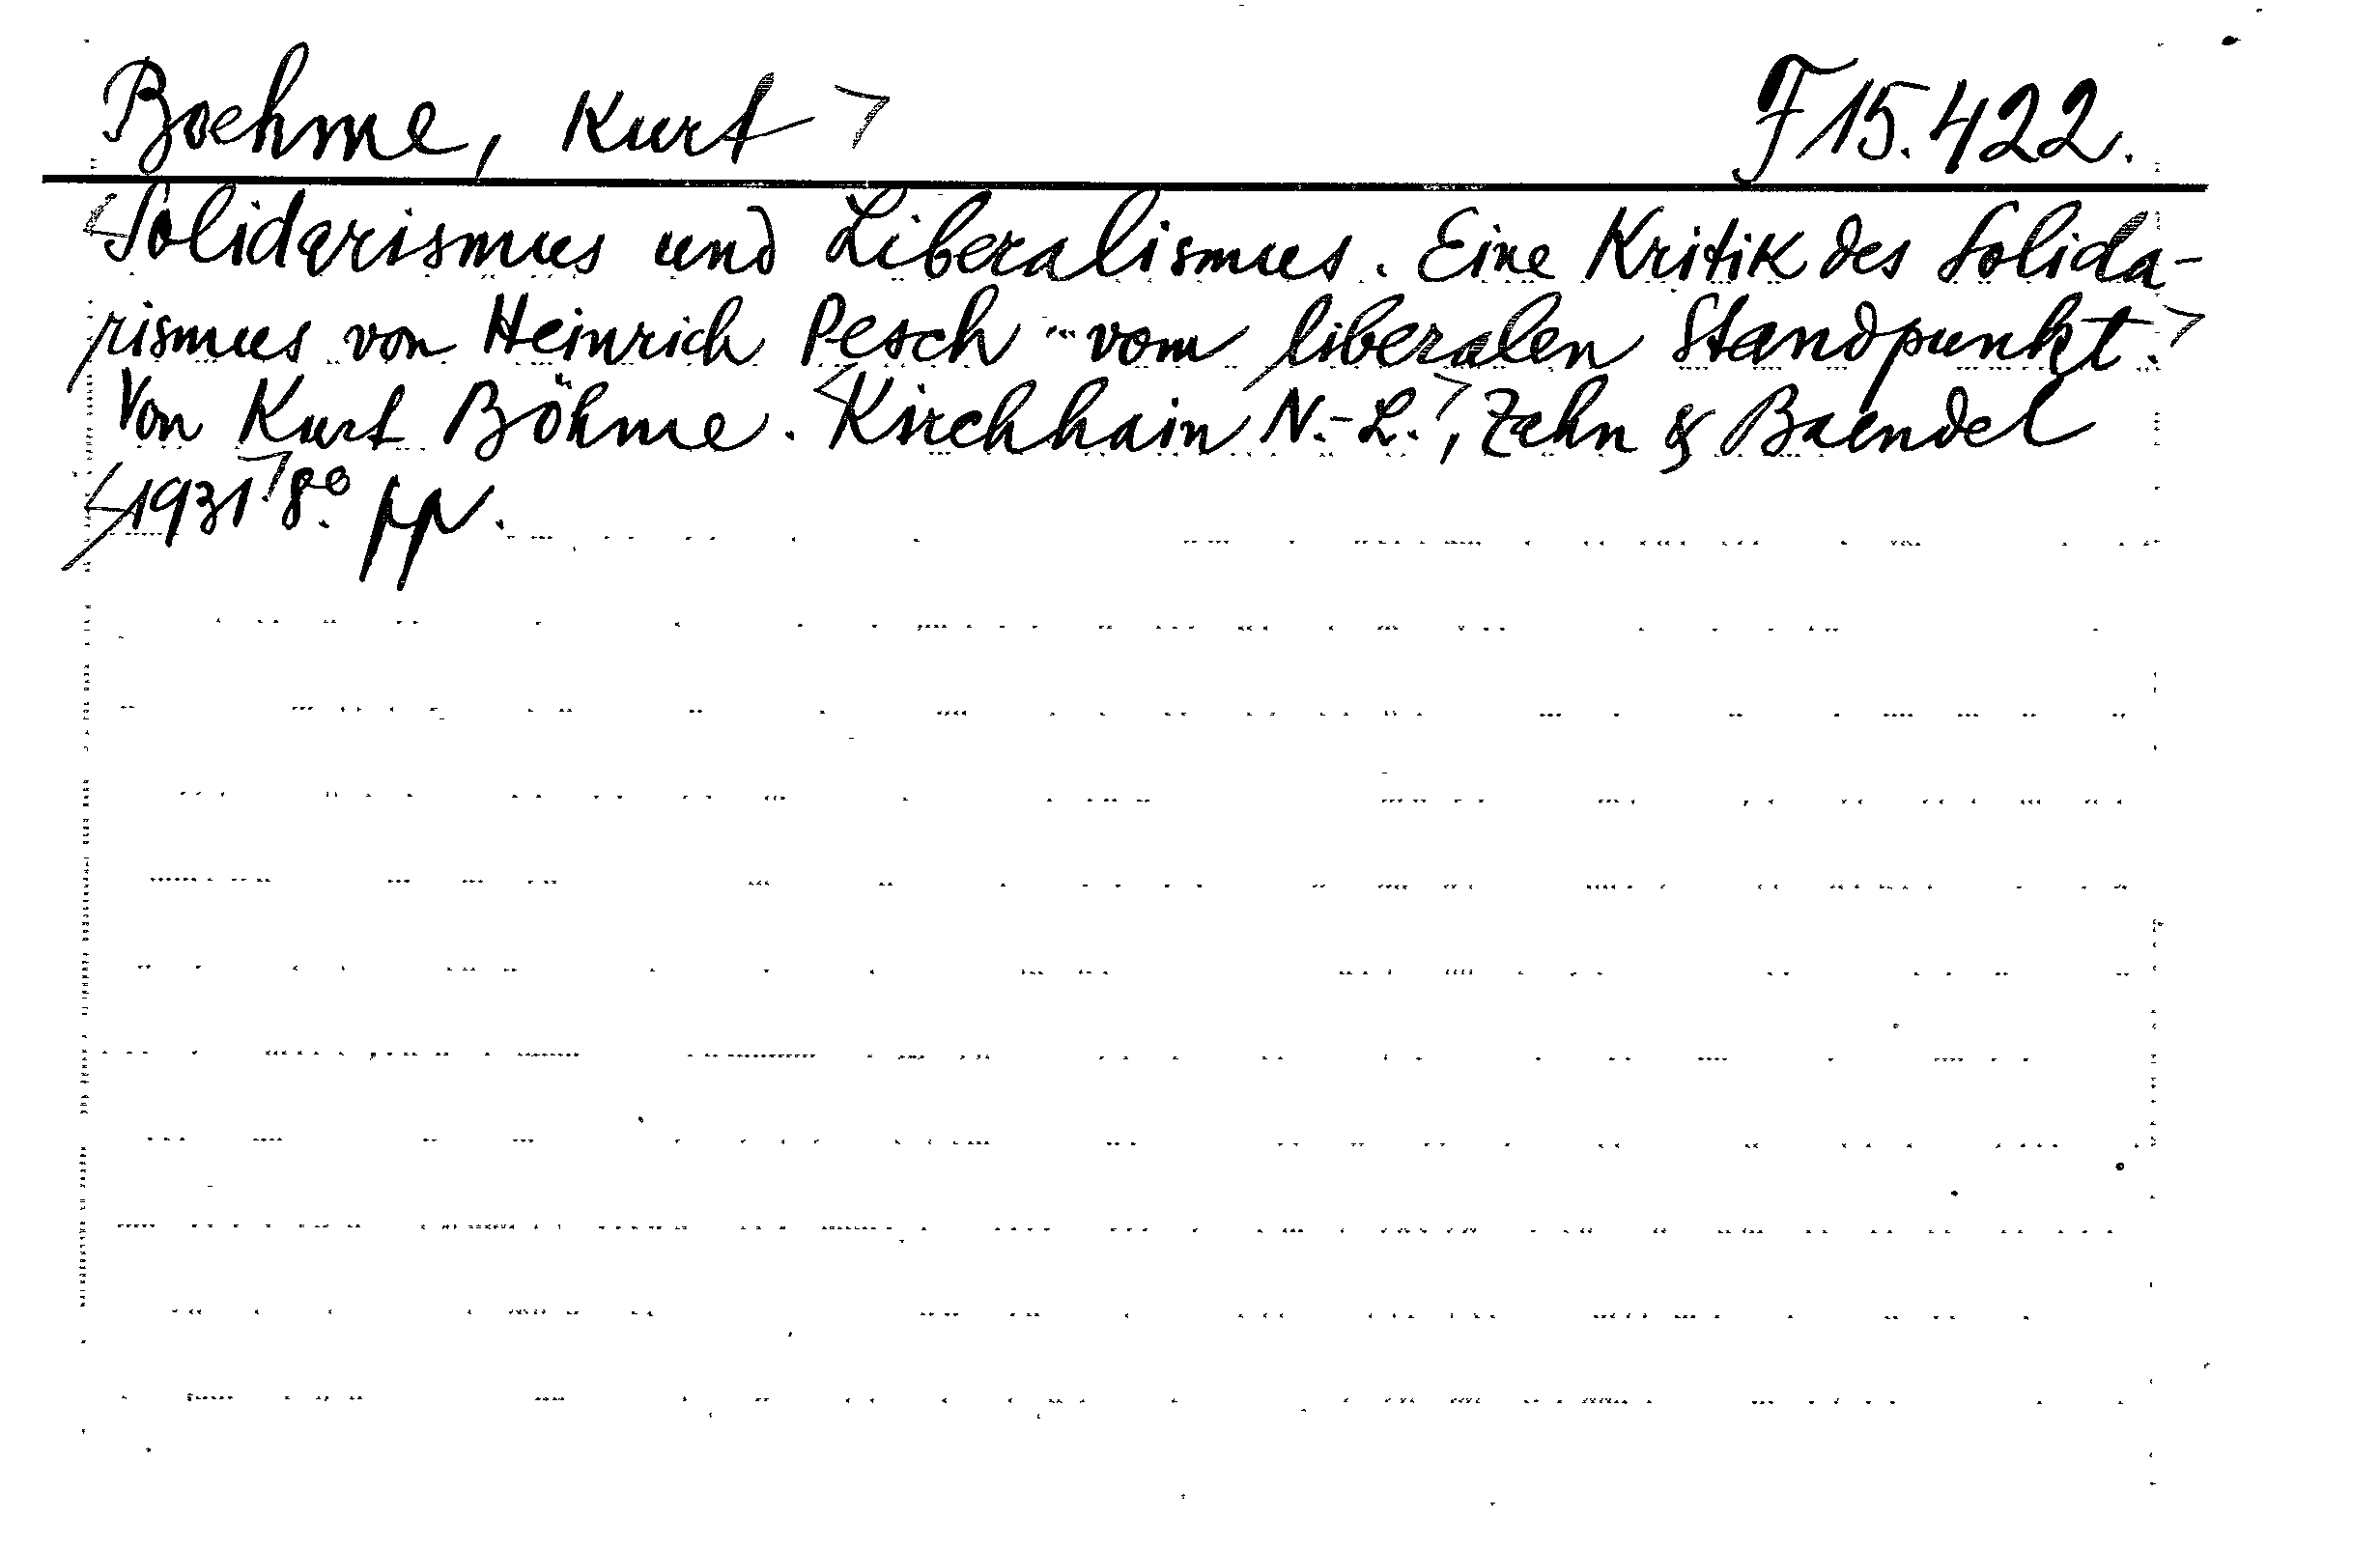 Boehme, Kurt F 15.422.
Solidarismus und Liberalismus. Eine Kritik des Solida-
rismus von Heinrich Pesch vom liberalen Standpunkt.
Von Kurt Böhme. Kirchhain N.-L., Zahn & Baendel
1931. 8º. pp.